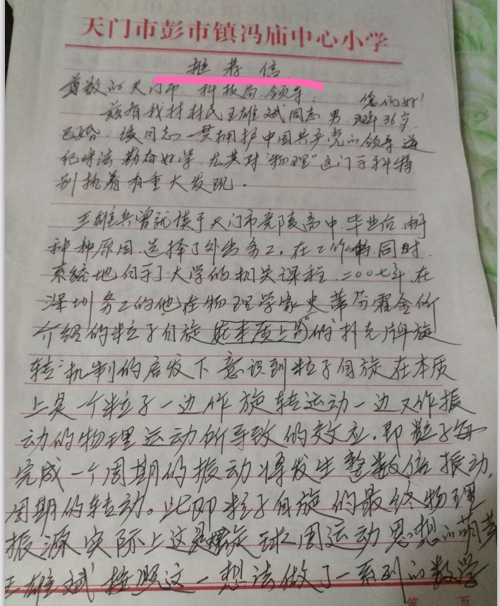 天门市彭市镇冯庙中心小学
推荐信
尊敬的天门市科技局领导: 您们好!
兹有我村村民王雄斌同志 男 现36岁
已婚。该同志一贯拥护中国共产党的领导 遵
纪守法 勤奋好学 尤其对“物理”这门学科特
别执着 有重大发现。
王雄兵曾就读于天门市竟陵高中 毕业后 由于
种种原因 选择了外出务工。在工作的同时
系统地自学了大学的相关课程 二00七年在
深圳务工的他在物理学家史蒂芬霍金所
介绍的粒子自旋 的扑克牌旋
转 机制的启发下 意识到粒子自旋在本质
上是一个粒子一边作旋转运动一边又作振
动的物理运动所导致的效应。即粒子每
完成一个周期的振动将发生整数倍振动
周期的转动。此即粒子自旋的最终物理
振源 实际上这是螺旋球周运动思想的萌芽
王雄斌 按照这一想法做了一系列的数学
第 页